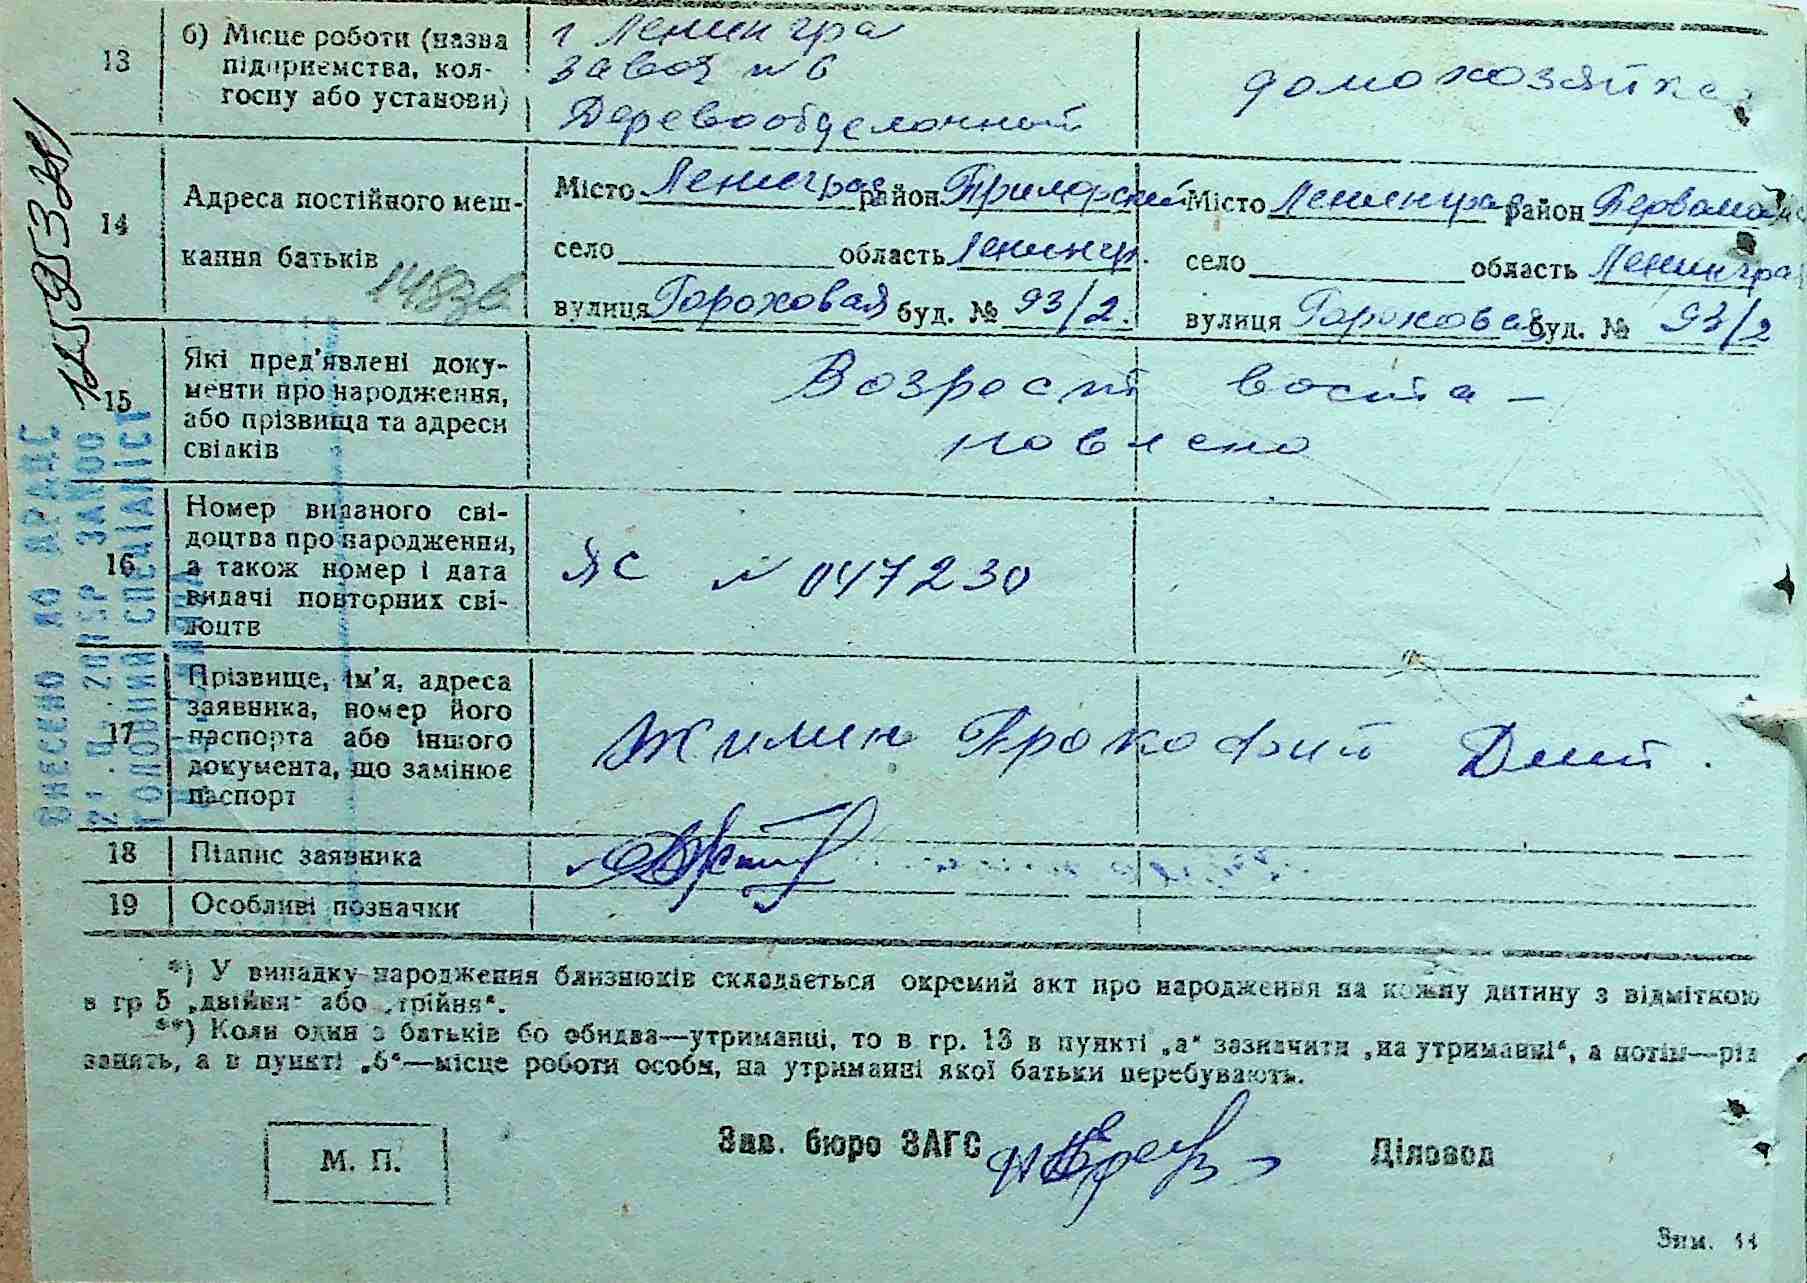 13
б) Місце роботи (назва
підприємства, кол-
госпу або установи)
г Ленингра
завод № 6
Деревообделочный
домохозяйка
14
Адреса постійного меш-
кання батьків
Місто Ленинград район Приморский
село область Ленингр.
вулиця Гороховая буд. № 93/2.
Місто Ленинград район Первомайс
село область Ленинград
вулиця Гороховая буд. № 93/2
15
Які пред'явлені доку-
менти про народження,
або прізвища та адреси
свідків
Возраст воста-
новлено
16
Номер виданого сві-
доцтва про народження,
а також номер і дата
видачі повторних сві-
доцтв
ЯС № 047230
17
Прізвище, ім'я, адреса
заявника, номер його
паспорта або іншого
документа, що замінює
паспорт
Жилин Прокофий Дмит.
18
Підпис заявника
19
Особливі позначки
*) У випадку народження близнюків складається окремий акт про народження на кожну дитину з відміткою
в гр 5 „двійня" або „трійня".
**) Коли один з батьків бо обидва—утриманці, то в гр. 13 в пункті „а" зазначити „на утриманні", а потім—рід
занять, а в пункті „б"—місце роботи особи, на утриманні якої батьки перебувають.
М. П.
Зав. бюро ЗАГС
Діловод
Зим. 11
ВНЕСЕНО ДО ДРАЦС
ГОЛОВНИЙ СПЕЦІАЛІСТ